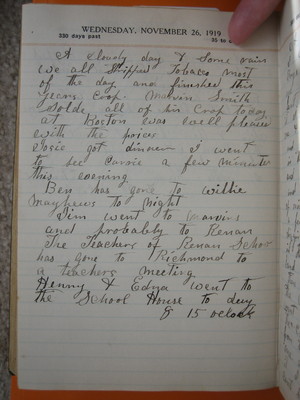 WEDNESDAY, NOVEMBER 26, 1919
330 days past 35 to
A cloudy day & Some rain
we all Stripped Tobacco most
of the day and finished this
years Crop. Smith
Solde all of his Crop today
at Boston was well pleased
with the prices
got dinner I went
to see Carrie a few minutes
this evening
Ben has gone to Willie
Mayhews to night
Jim went to
and probably to Renan
The Teachers of Renan School
has gone to Richmond to
a teachers meeting
Henry & Edna went to
the School House to day
8 15 oclock